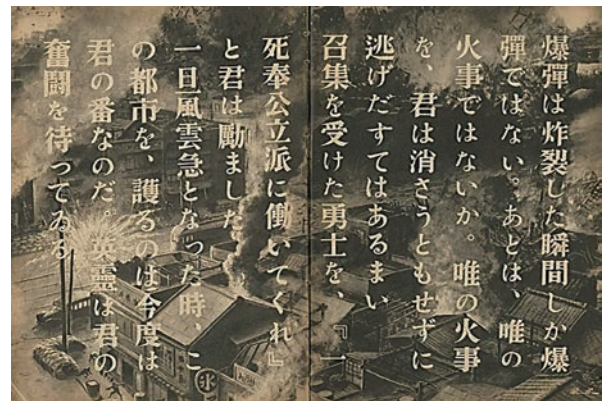 爆彈は炸裂した瞬間しか爆
彈ではない。あとは、唯の
火事ではないか。唯の火事
を、君は消さうともせずに
逃げだすてはあるまい
召集を受けた勇士を、『一
死奉公立派に働いてくれ』
と君は勵ました。
一旦風雲急となった時、こ
の都市を、護るのは今度は
君の番なのだ。英靈は君の
奮鬪を待ってゐる
氷